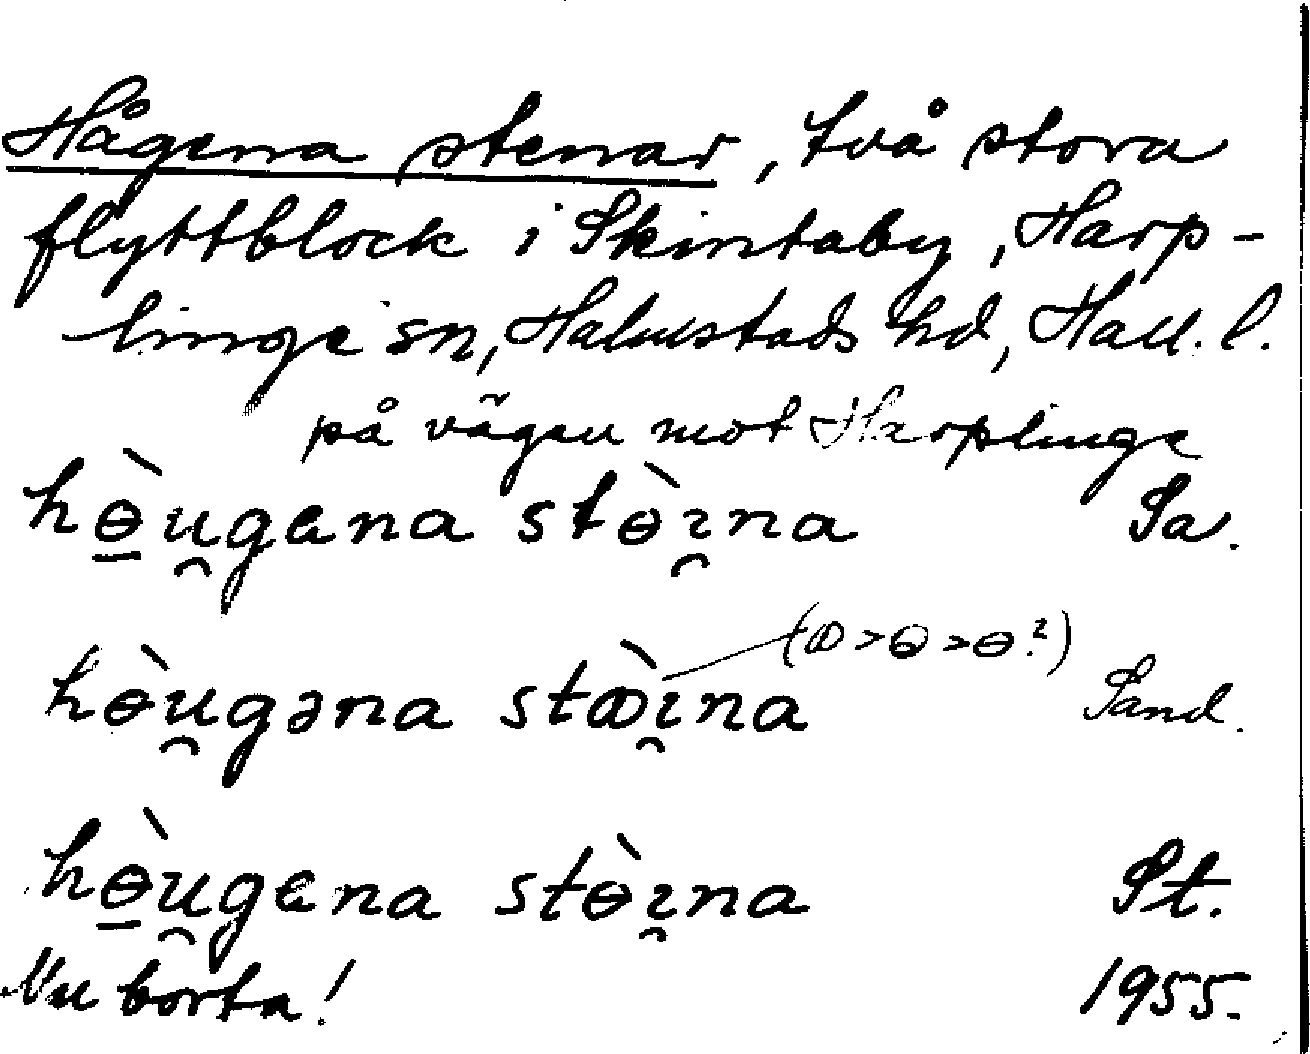 Hågena stenar, två stora
flyttblock i Skintaby, Harp-
linge sn, Halmstads hd, Hall. l.
på vägen mot Harplinge
hɵ̱̀u̯gena stɵ̀ɪ̯na Sa.
(ꝏ>ꝋ>ɵ?)
hɵ̀u̯gəna stꝏ̀ɪ̯na Sand.
hɵ̱̀u̯gena stɵ̀ɪ̯na St.
Nu borta! 1955.